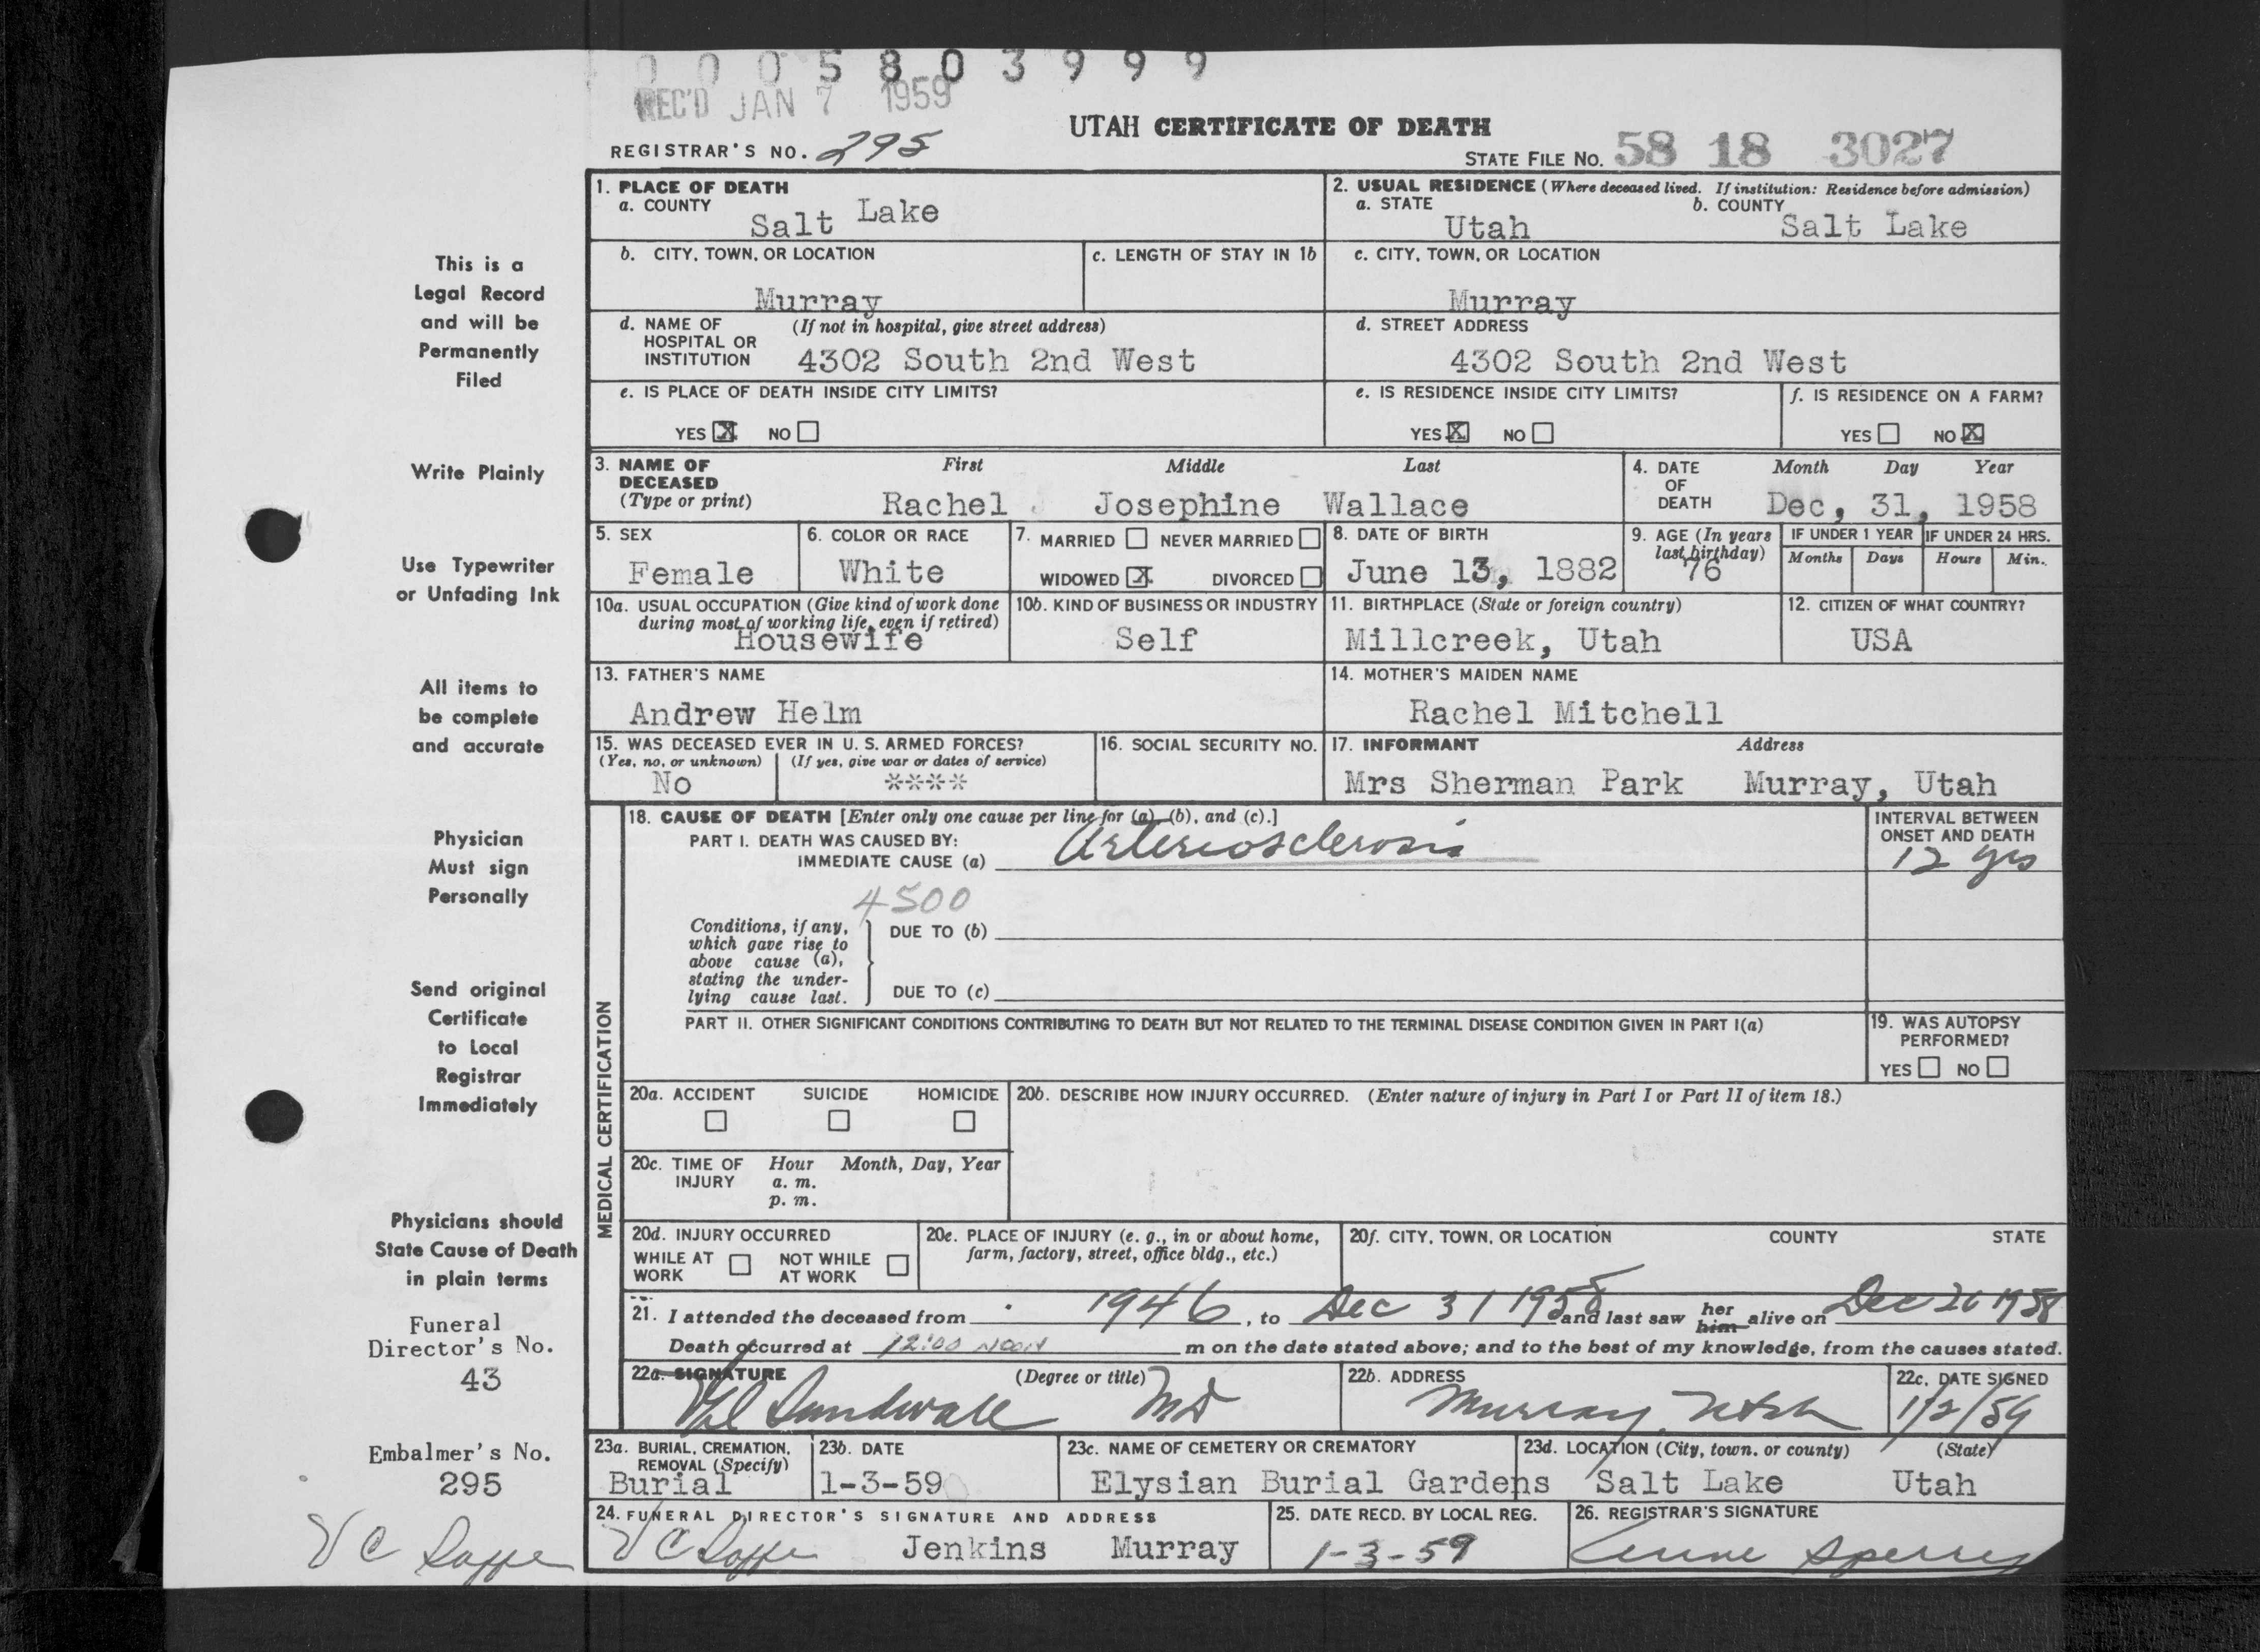 0 0 0 5 8 0 3 9 9 9
REC'D JAN 7 1959
UTAH CERTIFICATE OF DEATH
REGISTRAR'S NO. 295
STATE FILE NO. 58 18 3027
1. PLACE OF DEATH
a. COUNTY Salt Lake
2. USUAL RESIDENCE (Where deceased lived. If institution: Residence before admission)
a. STATE Utah b. COUNTY Salt Lake
b. CITY, TOWN, OR LOCATION Murray
c. LENGTH OF STAY IN 1b
c. CITY, TOWN, OR LOCATION Murray
d. NAME OF (If not in hospital, give street address)
HOSPITAL OR
INSTITUTION 4302 South 2nd West
d. STREET ADDRESS
4302 South 2nd West
e. IS PLACE OF DEATH INSIDE CITY LIMITS?
YES X NO
e. IS RESIDENCE INSIDE CITY LIMITS?
YES X NO
f. IS RESIDENCE ON A FARM?
YES NO X
3. NAME OF DECEASED (Type or print)
First Middle Last
Rachel Josephine Wallace
4. DATE OF DEATH
Month Day Year
Dec, 31, 1958
5. SEX
Female
6. COLOR OR RACE
White
7. MARRIED NEVER MARRIED
WIDOWED X DIVORCED
8. DATE OF BIRTH
June 13, 1882
9. AGE (In years last birthday)
76
IF UNDER 1 YEAR IF UNDER 24 HRS.
Months Days Hours Min.
10a. USUAL OCCUPATION (Give kind of work done
during most of working life, even if retired)
Housewife
10b. KIND OF BUSINESS OR INDUSTRY
Self
11. BIRTHPLACE (State or foreign country)
Millcreek, Utah
12. CITIZEN OF WHAT COUNTRY?
USA
13. FATHER'S NAME
Andrew Helm
14. MOTHER'S MAIDEN NAME
Rachel Mitchell
15. WAS DECEASED EVER IN U. S. ARMED FORCES?
(Yes, no, or unknown) (If yes, give war or dates of service)
No ****
16. SOCIAL SECURITY NO.
17. INFORMANT Address
Mrs Sherman Park Murray, Utah
MEDICAL CERTIFICATION
18. CAUSE OF DEATH [Enter only one cause per line for (a), (b), and (c).]
PART I. DEATH WAS CAUSED BY:
IMMEDIATE CAUSE (a) Arteriosclerosis
INTERVAL BETWEEN
ONSET AND DEATH
12 yrs
4500
Conditions, if any,
which gave rise to
above cause (a),
stating the under-
lying cause last.
DUE TO (b)
DUE TO (c)
PART II. OTHER SIGNIFICANT CONDITIONS CONTRIBUTING TO DEATH BUT NOT RELATED TO THE TERMINAL DISEASE CONDITION GIVEN IN PART I(a)
19. WAS AUTOPSY
PERFORMED?
YES NO
20a. ACCIDENT SUICIDE HOMICIDE
20b. DESCRIBE HOW INJURY OCCURRED. (Enter nature of injury in Part I or Part II of item 18.)
20c. TIME OF INJURY
Hour Month, Day, Year
a. m.
p. m.
20d. INJURY OCCURRED
WHILE AT WORK NOT WHILE AT WORK
20e. PLACE OF INJURY (e. g., in or about home,
farm, factory, street, office bldg., etc.)
20f. CITY, TOWN, OR LOCATION COUNTY STATE
21. I attended the deceased from 1946, to Dec 31 1958 and last saw her him alive on Dec 26 1958
Death occurred at 12:00 NOON m on the date stated above; and to the best of my knowledge, from the causes stated.
22a. SIGNATURE (Degree or title)
Sundwall MD
22b. ADDRESS
Murray, Utah
22c. DATE SIGNED
1/2/59
23a. BURIAL, CREMATION,
REMOVAL (Specify)
Burial
23b. DATE
1-3-59
23c. NAME OF CEMETERY OR CREMATORY
Elysian Burial Gardens
23d. LOCATION (City, town, or county) (State)
Salt Lake Utah
24. FUNERAL DIRECTOR'S SIGNATURE AND ADDRESS
Jenkins Murray
25. DATE RECD. BY LOCAL REG.
1-3-59
26. REGISTRAR'S SIGNATURE
Sperry
This is a
Legal Record
and will be
Permanently
Filed
Write Plainly
Use Typewriter
or Unfading Ink
All items to
be complete
and accurate
Physician
Must sign
Personally
Send original
Certificate
to Local
Registrar
Immediately
Physicians should
State Cause of Death
in plain terms
Funeral
Director's No.
43
Embalmer's No.
295